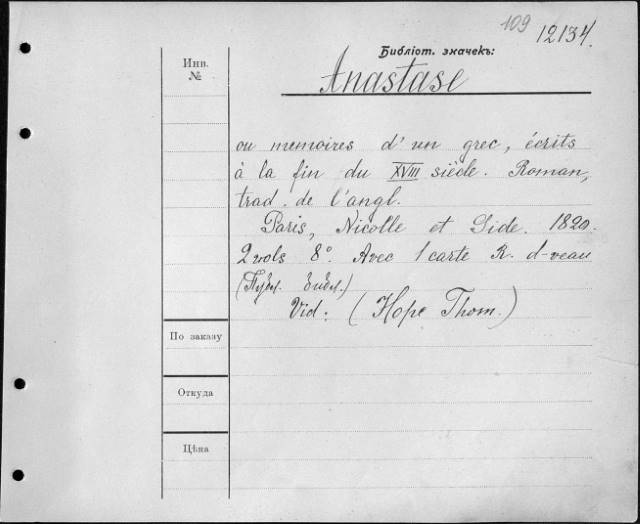 109 12134.
Библіот. значекъ:
Инв.
№
Anastase
ou memoires d'un grec, écrits
à la fin du XVIII siècle. Roman,
trad. de l'angl.
Paris, Nicolle et Lide. 1820.
2 vols 8º. Avec 1 carte R. d-veau
(Публ. библ.)
Vid: (Hope Thom.)
По заказу
Откуда
Цѣна